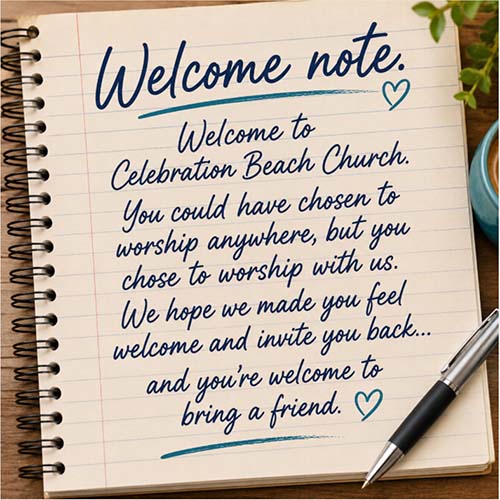 Welcome note.
Welcome to
Celebration Beach Church.
You could have chosen to
worship anywhere, but you
chose to worship with us.
We hope we made you feel
welcome and invite you back...
and you're welcome to
bring a friend.